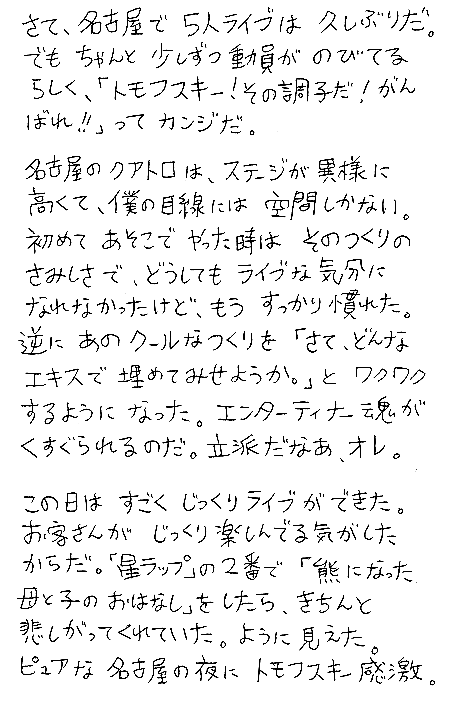 さて、名古屋で 5人ライブは 久しぶりだ。
でも ちゃんと 少しずつ動員が のびてる
らしく、「トモフスキー!その調子だ!がん
ばれ!!」って カンジだ。
名古屋のクアトロは、ステージが異様に
高くて、僕の目線には 空間しかない。
初めて あそこで やった時は そのつくりの
さみしさで、どうしても ライブな気分に
なれなかったけど、もう すっかり慣れた。
逆に あの クールなつくりを 「さて、どんな
エキスで 埋めてみせようか。」と ワクワク
するように なった。エンターティナー魂が
くすぐられるのだ。立派だなあ、オレ。
この日は すごく じっくりライブができた。
お客さんが じっくり楽しんでる気がした
からだ。「星ラップ」の2番で 「熊になった
母と子の おはなし」をしたら、きちんと
悲しがってくれていた。ように 見えた。
ピュアな 名古屋の夜に トモフスキー感激。